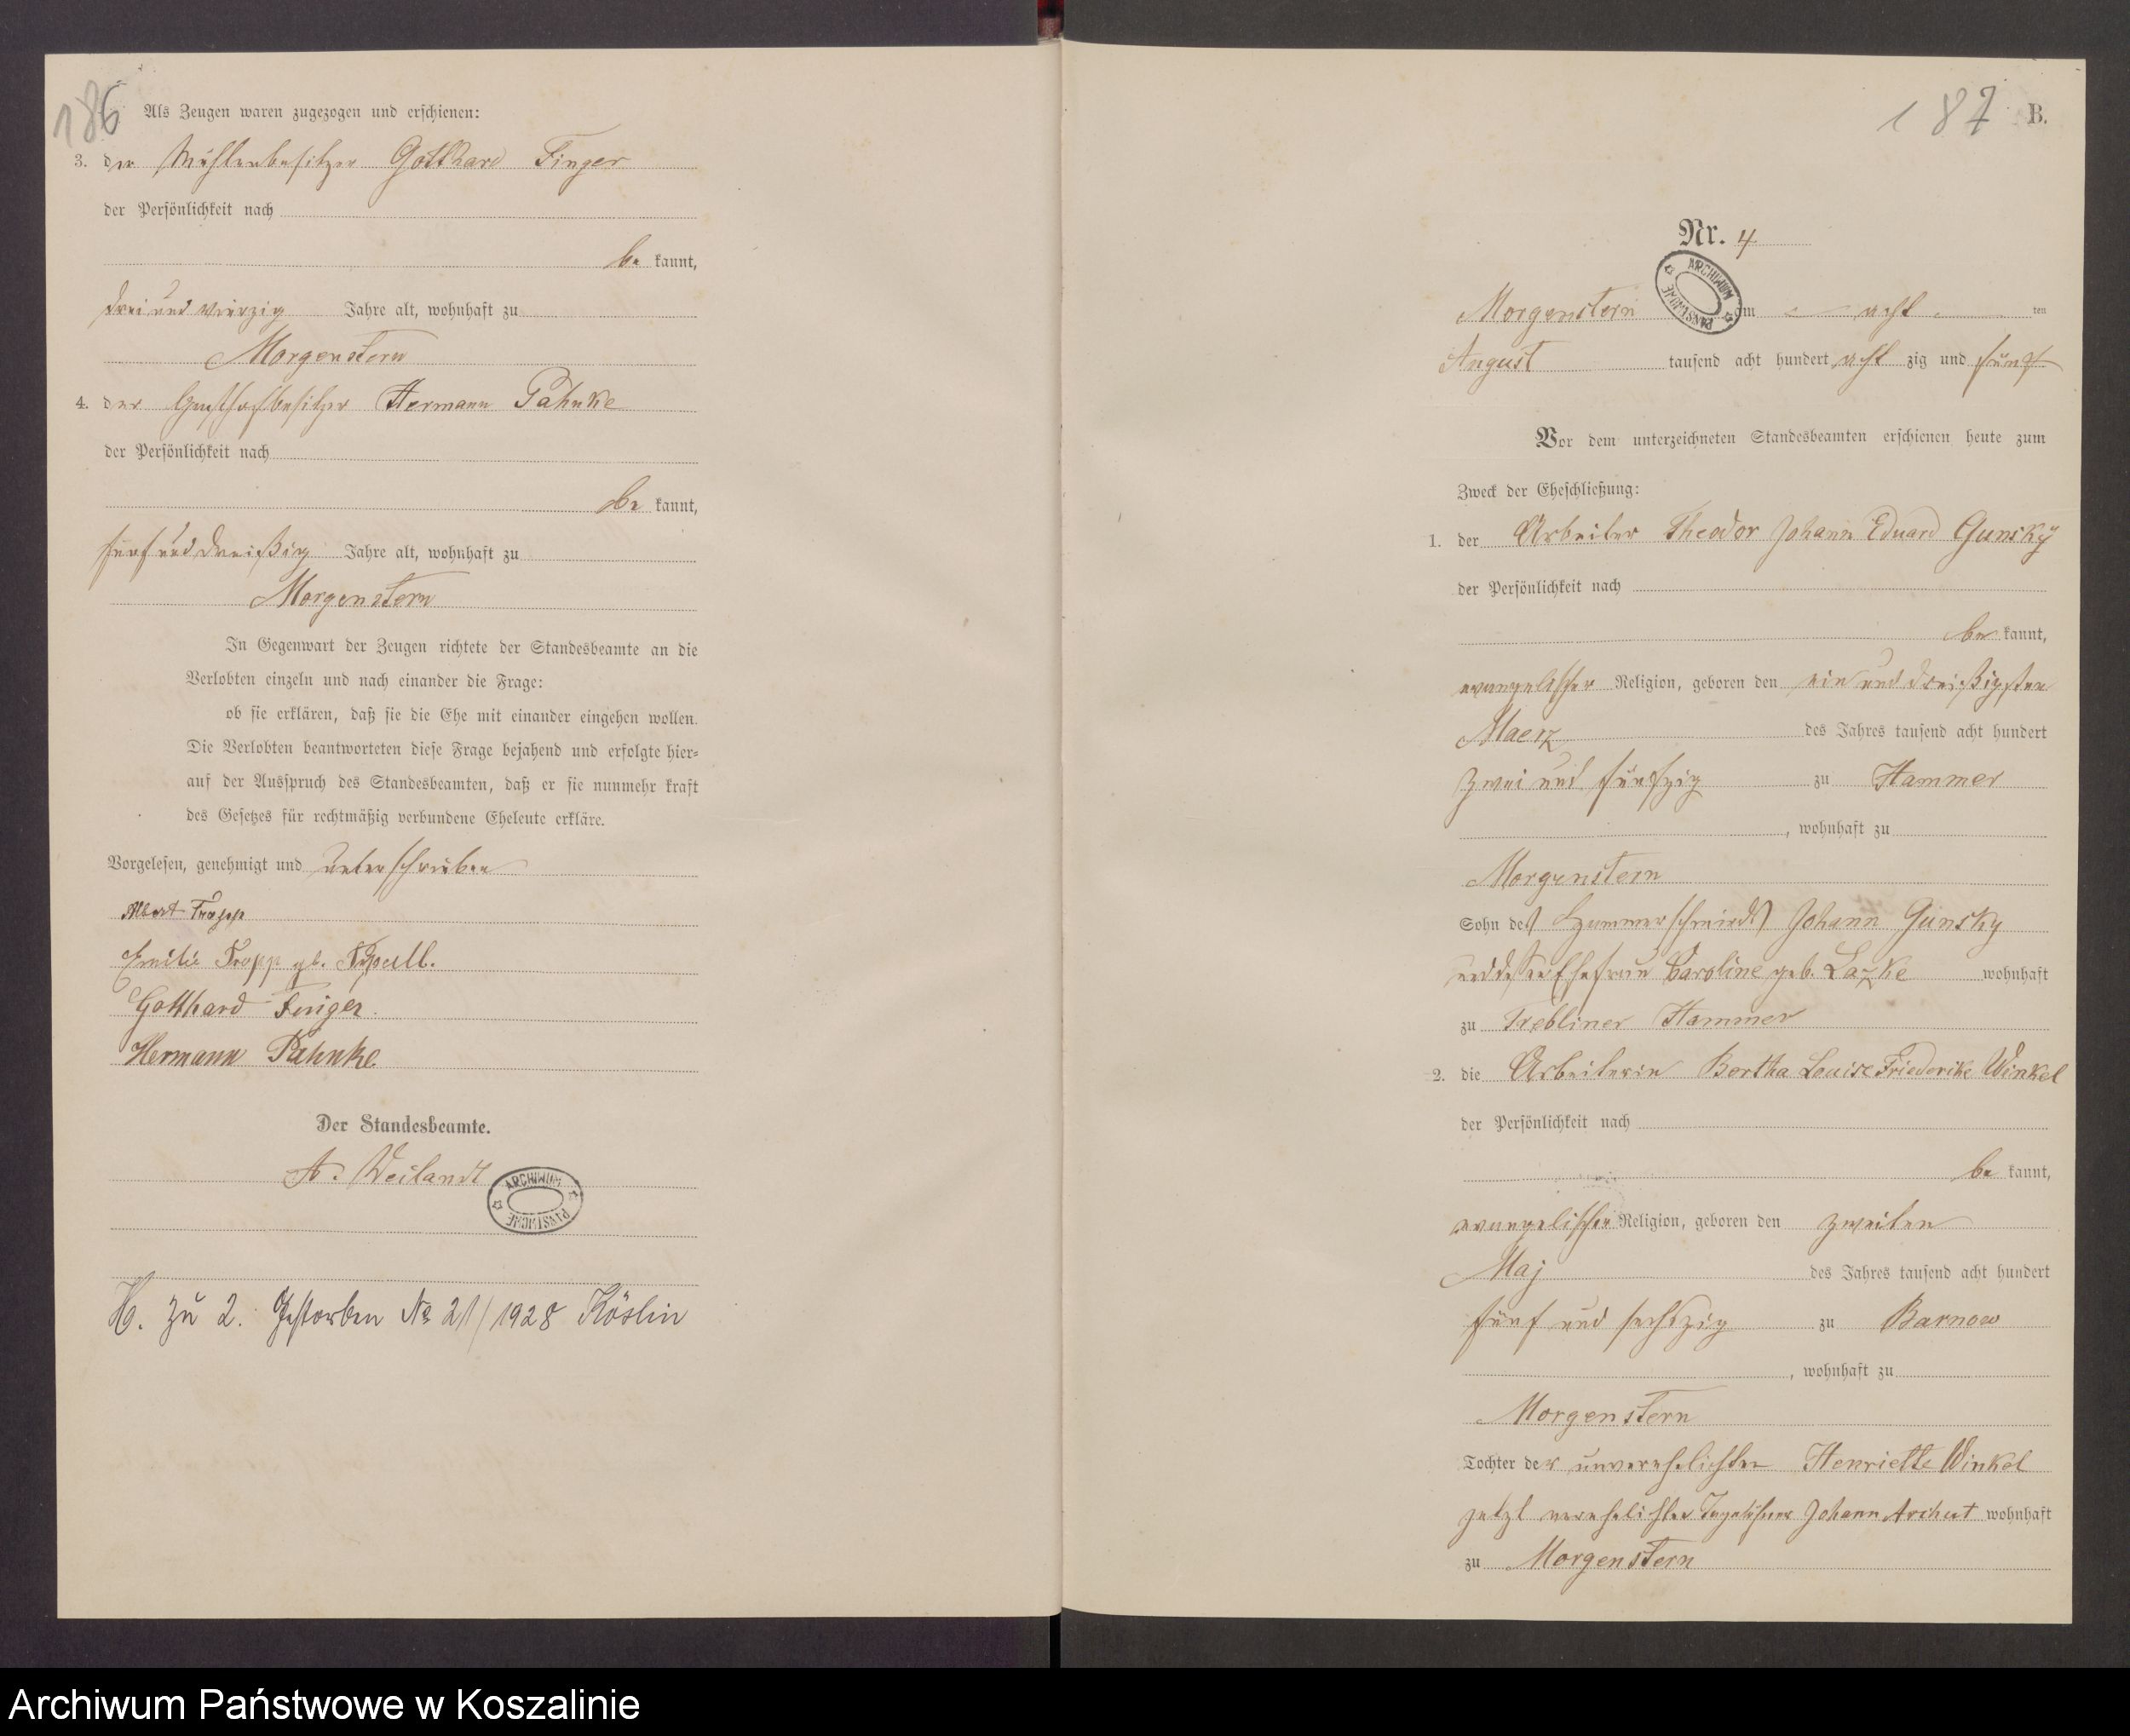 186
Als Zeugen waren zugezogen und erschienen:
3. der Mühlenbesitzer Gotthard Finger
der Persönlichkeit nach
be kannt,
drei und vierzig Jahre alt, wohnhaft zu
Morgenstern
4. der Gasthofbesitzer Hermann Pahnke
der Persönlichkeit nach
be kannt,
fünf und dreißig Jahre alt, wohnhaft zu
Morgenstern
In Gegenwart der Zeugen richtete der Standesbeamte an die
Verlobten einzeln und nach einander die Frage:
ob sie erklären, daß sie die Ehe mit einander eingehen wollen.
Die Verlobten beantworteten diese Frage bejahend und erfolgte hier-
auf der Ausspruch des Standesbeamten, daß er sie nunmehr kraft
des Gesetzes für rechtmäßig verbundene Eheleute erkläre.
Vorgelesen, genehmigt und unterschrieben
Albert Tropp
Emilie Tropp gb.
Gotthard Finger.
Hermann Pahnke
Der Standesbeamte.
A. Weilandt
ARCHIWUM PAŃSTWOWE
H. zu 2. Gestorben No 21/1928 Köslin
187 B.
Nr. 4
ARCHIWUM PAŃSTWOWE
Morgenstern am acht ten
August tausend acht hundert acht zig und fünf
Vor dem unterzeichneten Standesbeamten erschienen heute zum
Zweck der Eheschließung:
1. der Arbeiter Theodor Johann Eduard Gunsky
der Persönlichkeit nach
be kannt,
evangelischer Religion, geboren den ein und dreißigsten
Maerz des Jahres tausend acht hundert
zwei und fünfzig zu Hammer
, wohnhaft zu
Morgenstern
Sohn des Hammerschmieds Johann Gunsky
und dessen Ehefrau Caroline geb. Lazke wohnhaft
zu Trebliner Hammer
2. die Arbeiterin Bertha Louise Friederike Winkel
der Persönlichkeit nach
be kannt,
evangelischer Religion, geboren den zweiten
Maj des Jahres tausend acht hundert
fünf und sechszig zu Barnow
, wohnhaft zu
Morgenstern
Tochter der unverehelichten Henriette Winkel
jetzt verehelichter Tagelöhner Johann Archut wohnhaft
zu Morgenstern
Archiwum Państwowe w Koszalinie